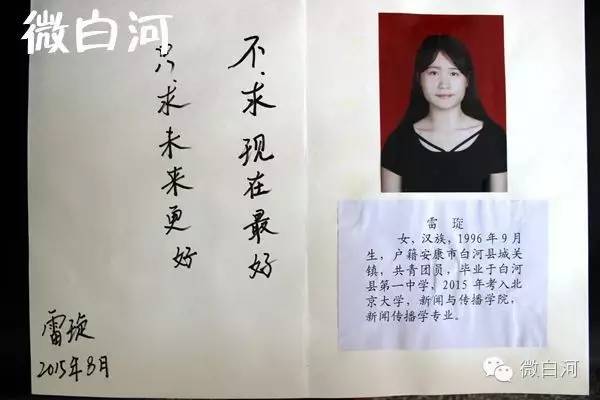 微白河
不求现在最好
只求未来更好
雷璇
2015年8月
雷 璇
女，汉族，1996年9月
生，户籍安康市白河县城关
镇，共青团员，毕业于白河
县第一中学，2015年考入北
京大学，新闻与传播学院，
新闻传播学专业。
微白河